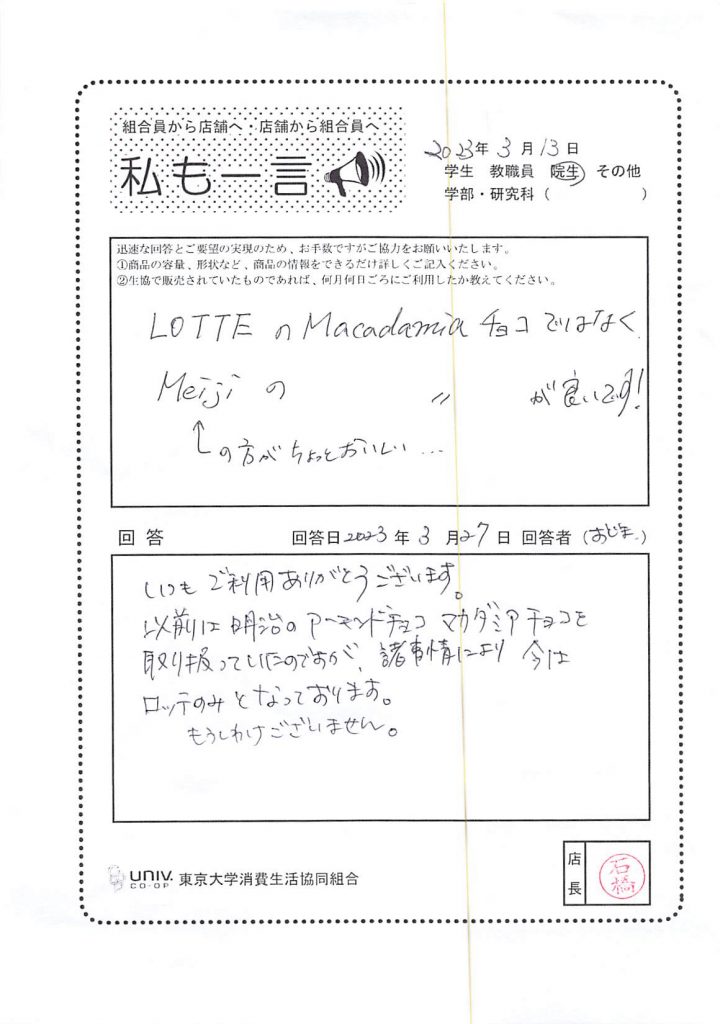 組合員から店舗へ・店舗から組合員へ
私も一言
2023年3月13日
学生 教職員 院生 その他
学部・研究科（ ）
迅速な回答とご要望の実現のため、お手数ですがご協力をお願いいたします。
①商品の容量、形状など、商品の情報をできるだけ詳しくご記入ください。
②生協で販売されていたものであれば、何月何日ごろにご利用したか教えてください。
LOTTE の Macadamia チョコ ではなく
Meiji の 〃 が良いです!
↑の方がちょっとおいしい…
回答 回答日2023年3月27日 回答者（おじま）
いつもご利用ありがとうございます。
以前は明治のアーモンドチョコ マカダミアチョコを
取り扱っていたのですが、諸事情により 今は
ロッテのみとなっております。
もうしわけございません。
UNIV. CO-OP 東京大学消費生活協同組合
店長 石橋